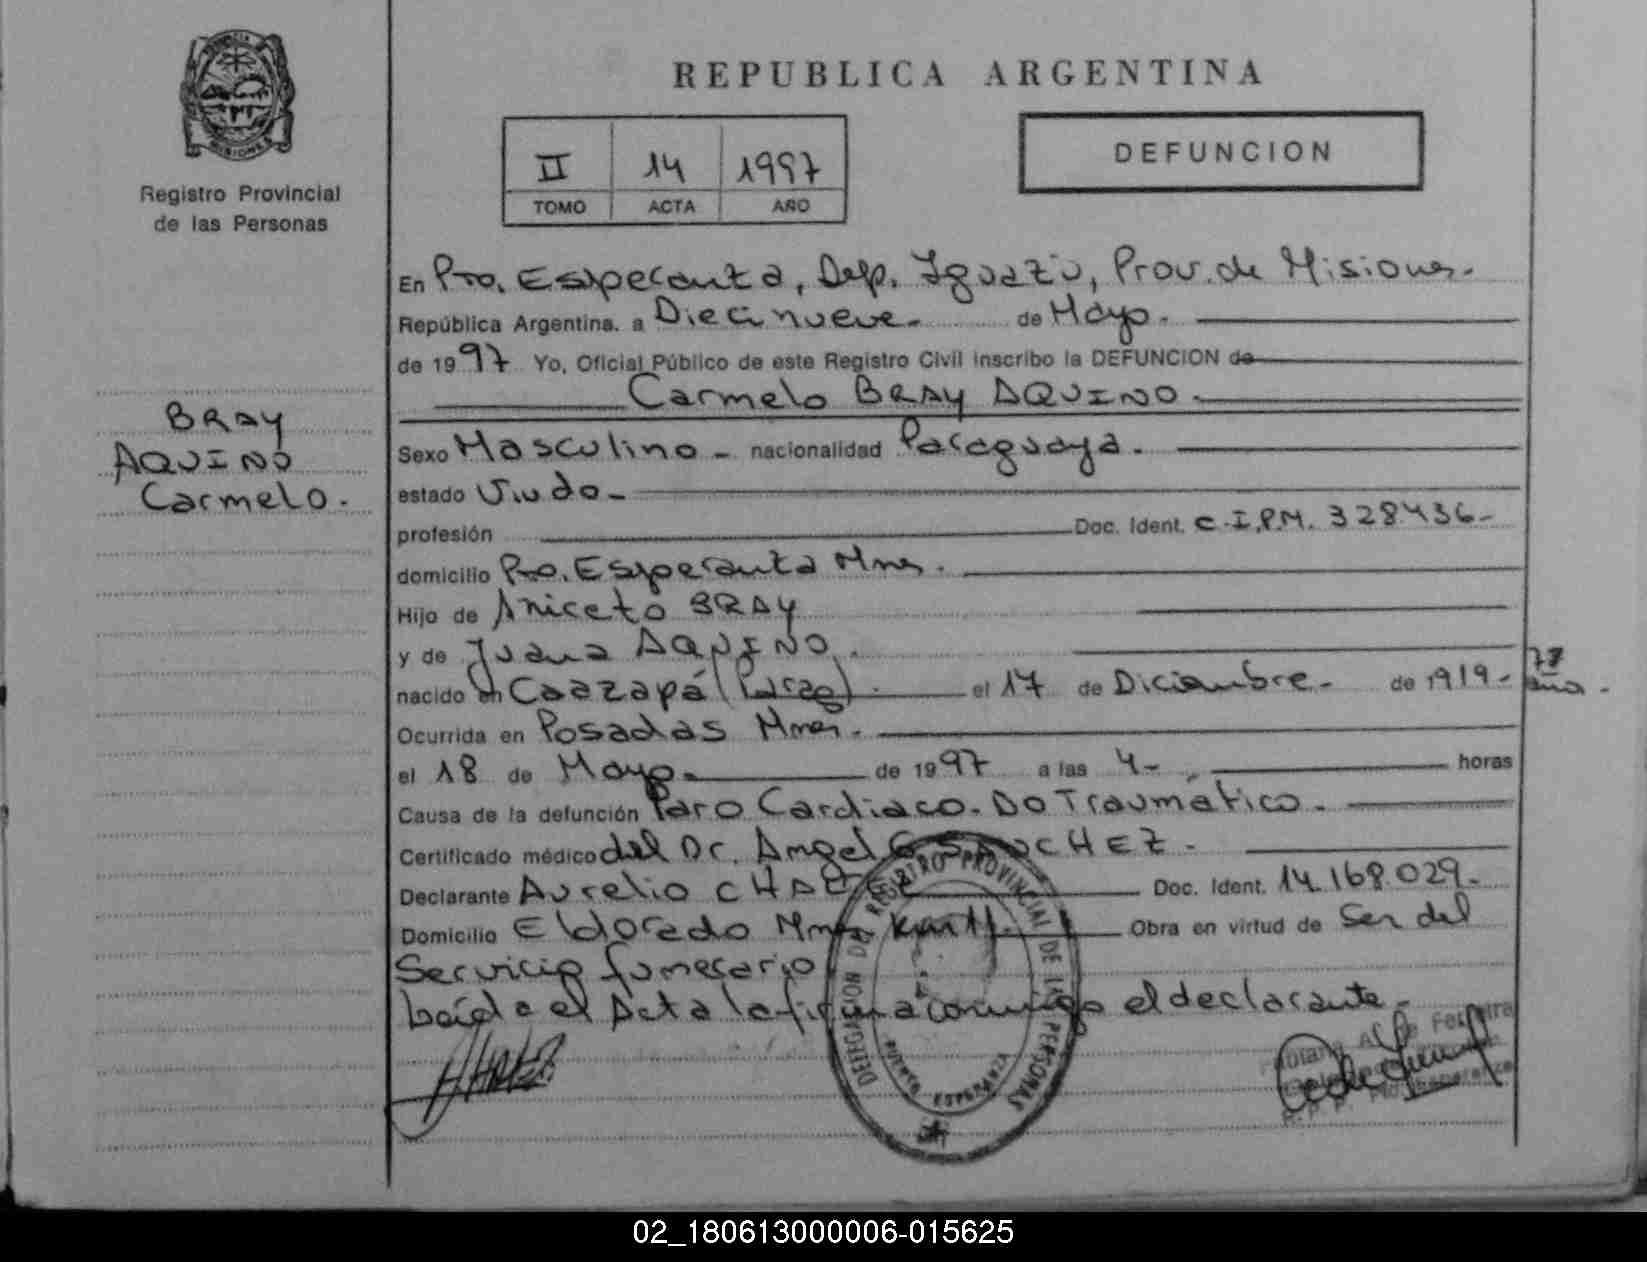 REPUBLICA ARGENTINA
PROVINCIA
MISIONES
Registro Provincial
de las Personas
II 14 1997
TOMO ACTA AÑO
DEFUNCION
En Pto. Esperanza, Dep. Iguazú, Prov. de Misiones.
República Argentina, a Diecinueve de Mayo.
de 1997 Yo, Oficial Público de este Registro Civil inscribo la DEFUNCION de
Carmelo BRAY AQUINO.
BRAY
AQUINO
Carmelo.
Sexo Masculino - nacionalidad Paraguaya.
estado Viudo -
profesión Doc. Ident. C.I.P.M. 328436-
domicilio Pto. Esperanza Mnes.
Hijo de Aniceto BRAY
y de Juana AQUINO.
nacido en Caazapá (Parag). el 17 de Diciembre. de 1919- 77 años.
Ocurrida en Posadas Mnes.
el 18 de Mayo. de 1997 a las 4- horas
Causa de la defunción Paro Cardiaco. Do Traumatico.
Certificado médico del Dr. Angel SANCHEZ.
Declarante Aurelio Doc. Ident. 14.168.029.
Domicilio Eldorado Mnes Obra en virtud de Ser del
Servicio funerario
Leída el Acta la firma conmigo el declarante.
DELEGACION DE REGISTRO PROVINCIAL DE LAS PERSONAS
PUERTO ESPERANZA
02_180613000006-015625